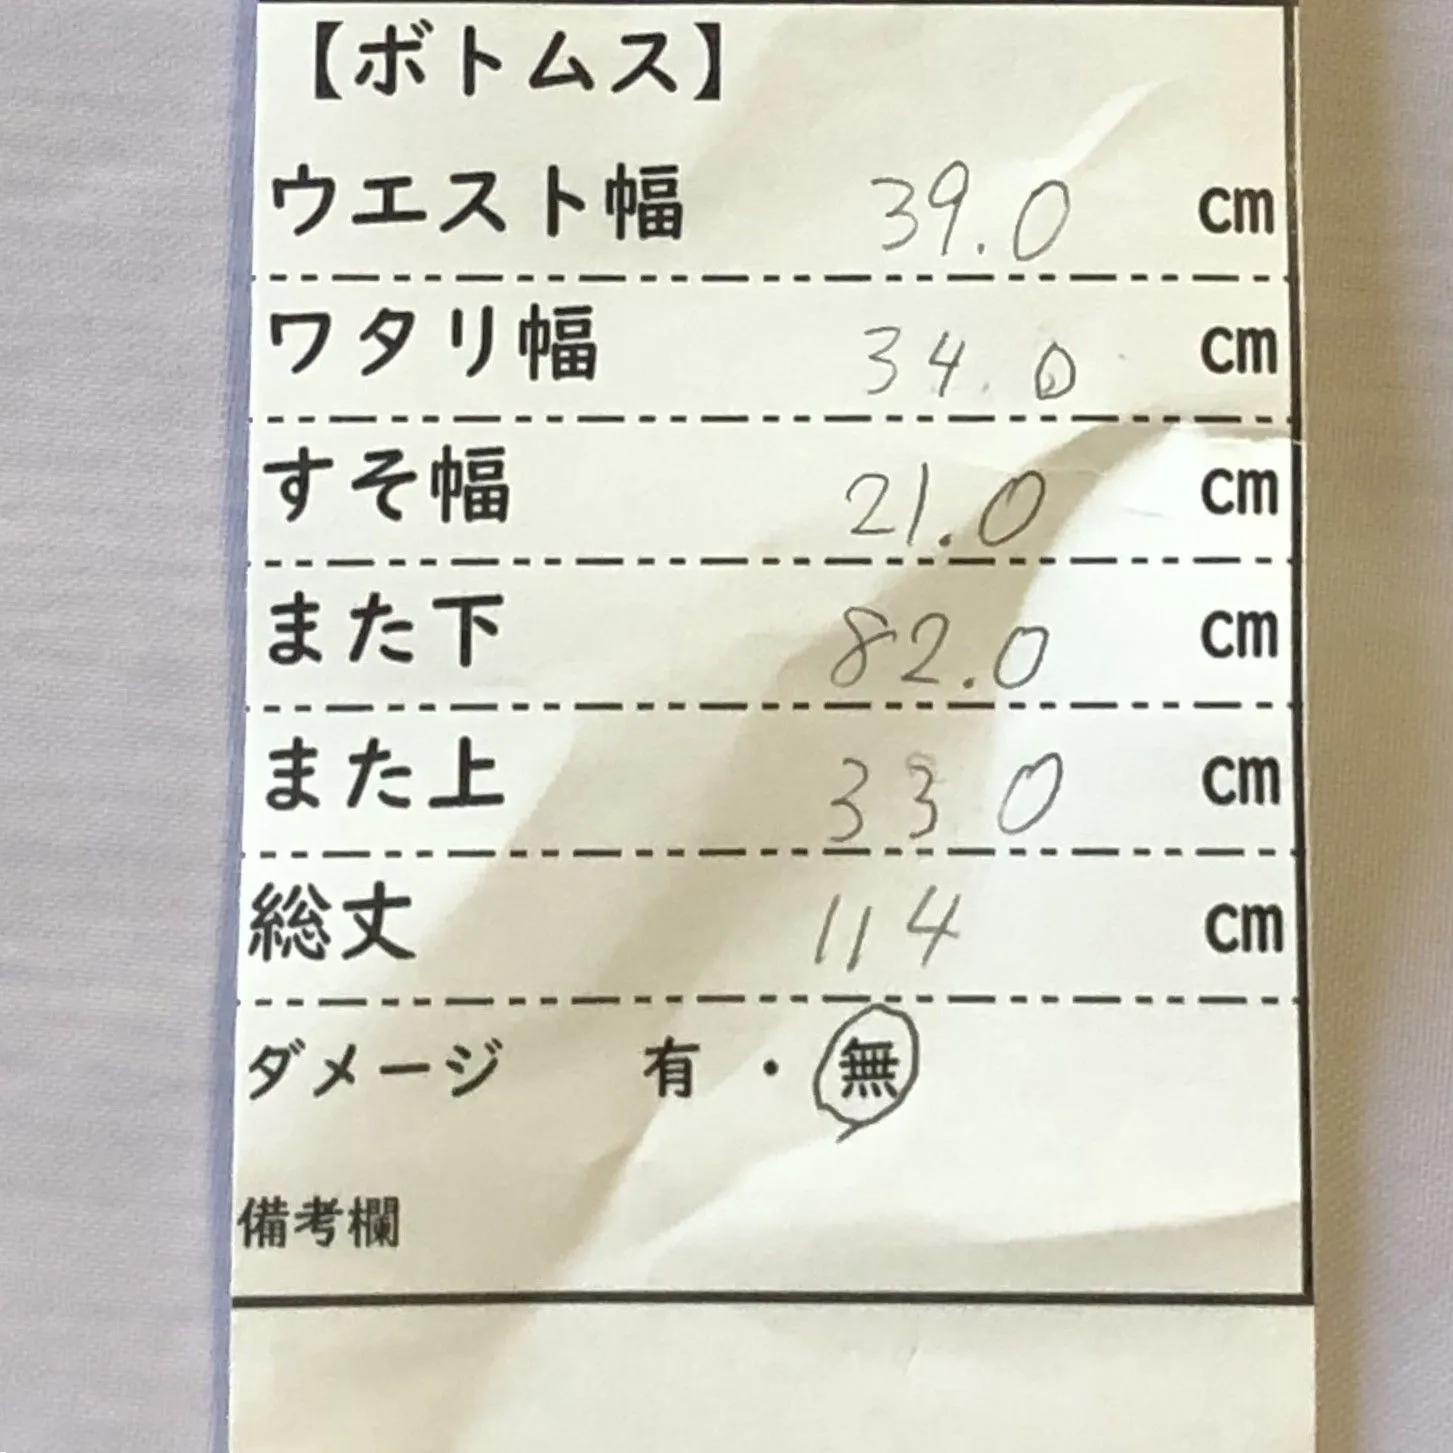 【ボトムス】
ウエスト幅 39.0 cm
ワタリ幅 34.0 cm
すそ幅 21.0 cm
また下 82.0 cm
また上 33 0 cm
総丈 114 cm
ダメージ 有・無
備考欄